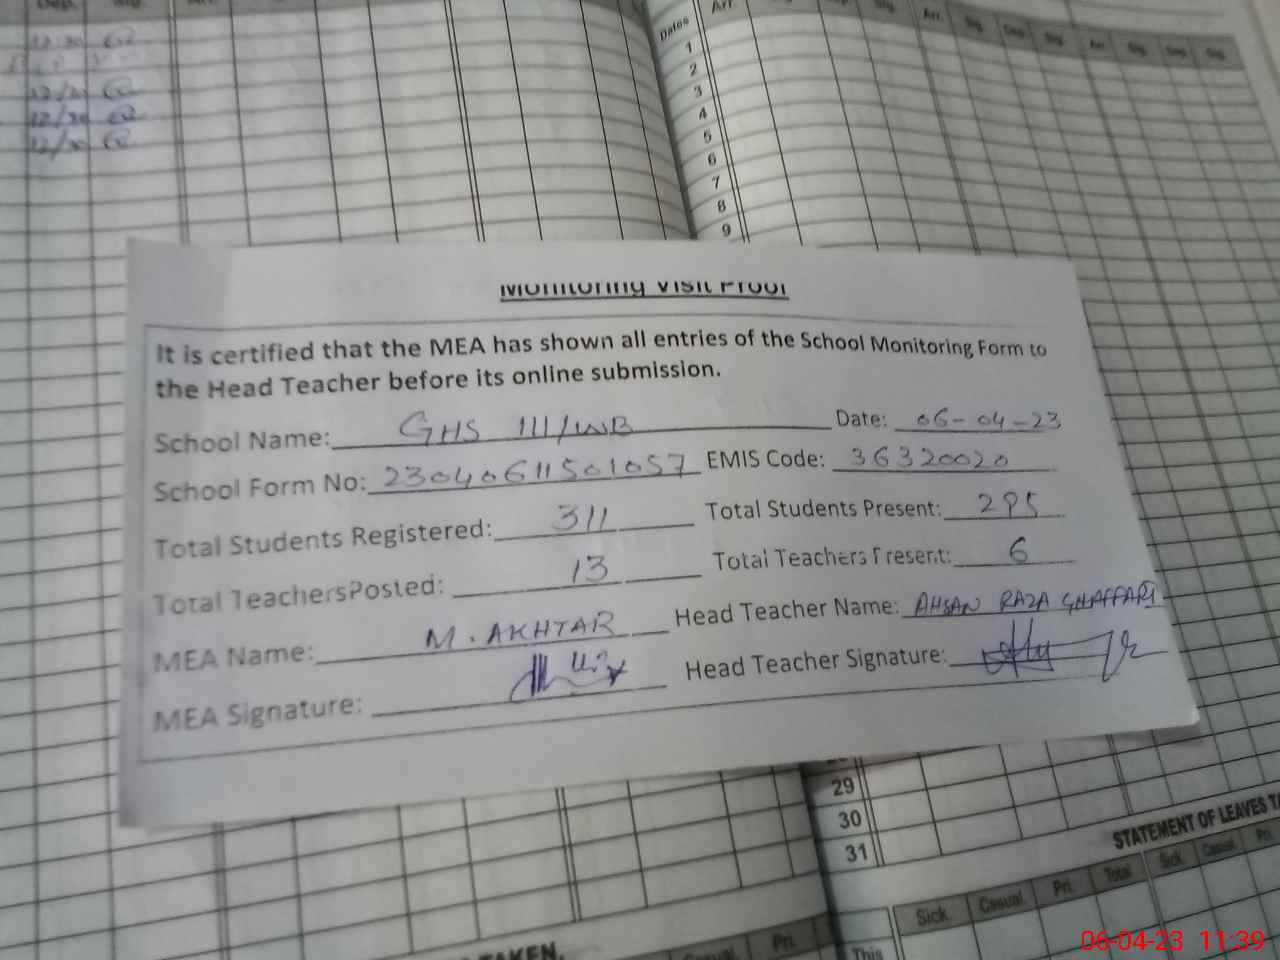 Dep.
12/30
12/30
12/30
Dates Arr.
1
2
3
4
5
6
7
8
9
Monitoring Visit Proof
It is certified that the MEA has shown all entries of the School Monitoring Form to
the Head Teacher before its online submission.
School Name: GHS 111/WB Date: 06-04-23
School Form No: 23040611501057 EMIS Code: 36320020
Total Students Registered: 311 Total Students Present: 295
Total TeachersPosted: 13 Total Teachers Present: 6
MEA Name: M. AKHTAR Head Teacher Name: AHSAN RAZA GHAFFARI
MEA Signature: Head Teacher Signature:
29
30
31
STATEMENT OF LEAVES TA
Sick. Casual. Pri. Total Sick. Casual. Pri.
TAKEN. Casual. Pri. This
06-04-23 11:39